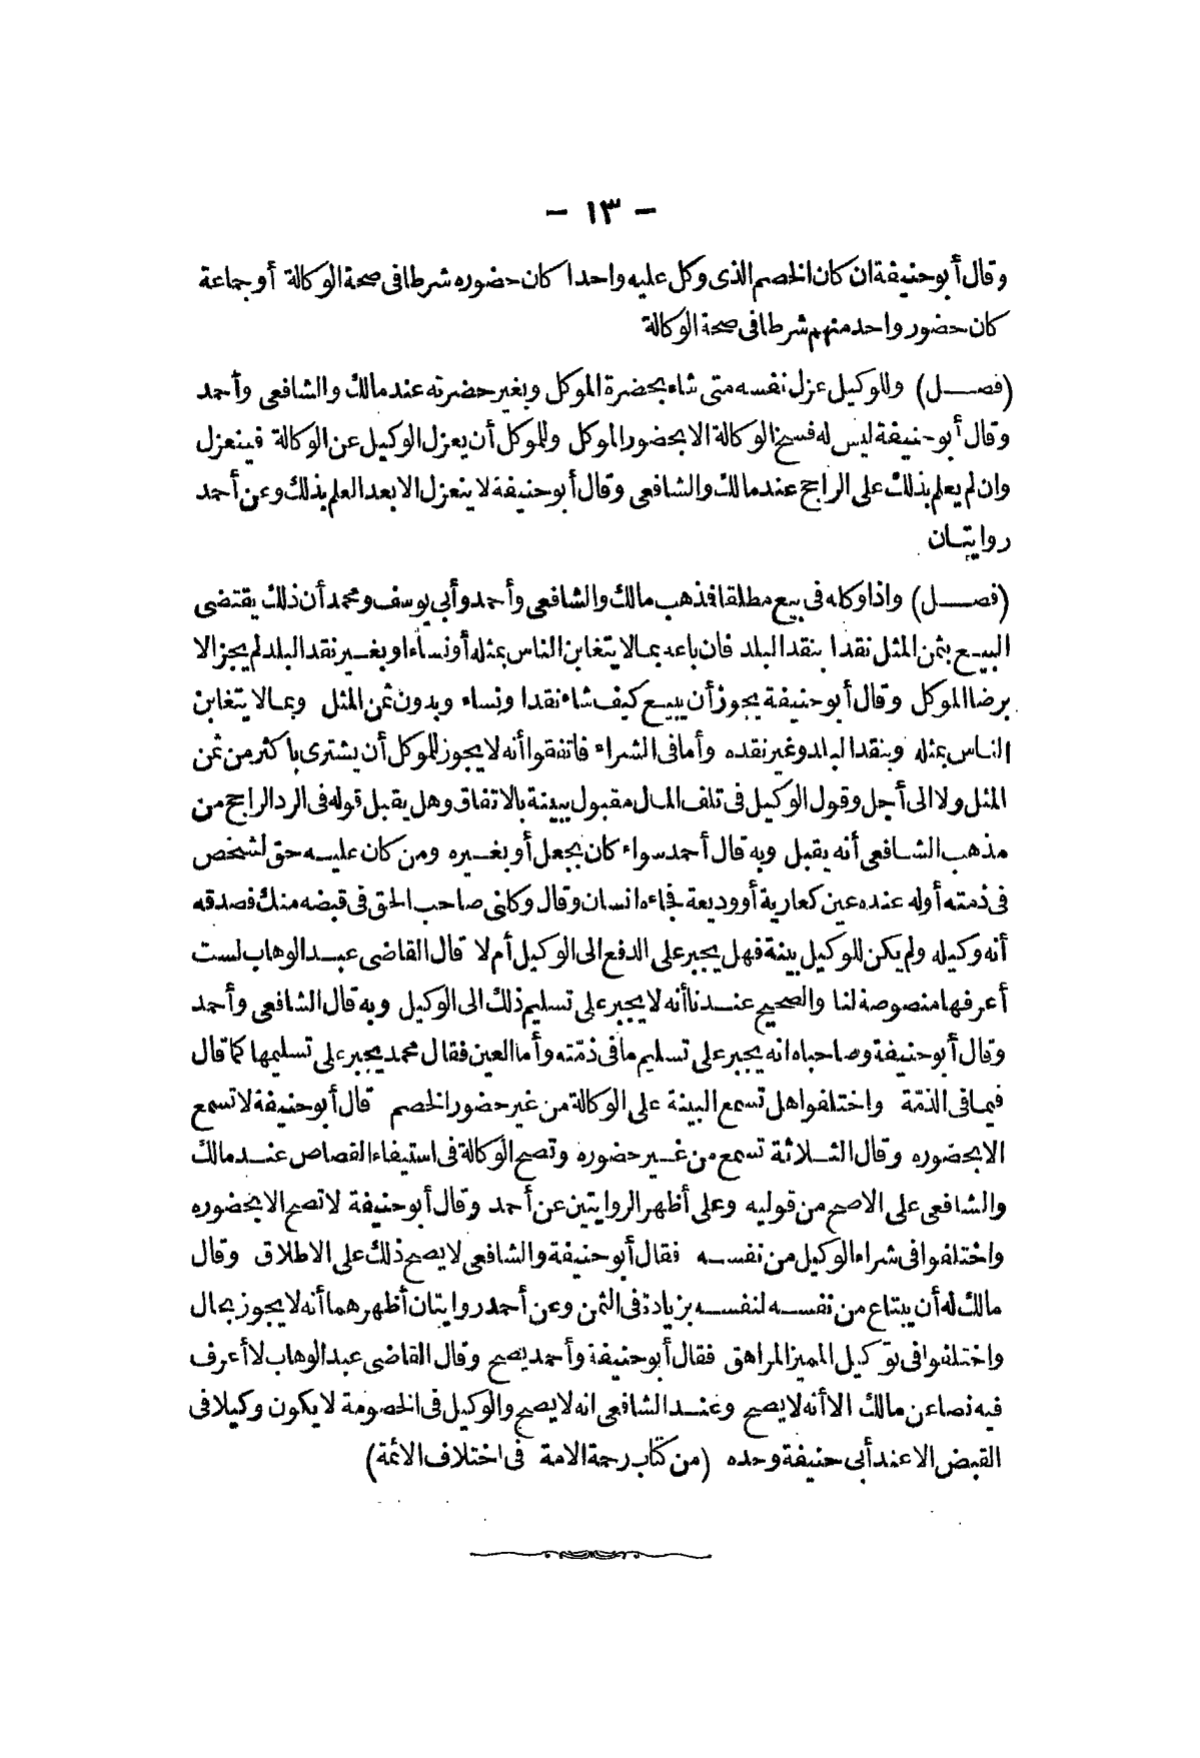 - ١٣ -
وقال أبو حنيفة ان كان الخصم الذى وكل عليه واحدا كان حضوره شرطا فى صحة الوكالة أو جماعة
كان حضور واحد منهم شرطا فى صحة الوكالة
(فصـــل) وللوكيل عزل نفسه متى شاء بحضرة الموكل وبغير حضرته عند مالك والشافعى وأحمد
وقال أبو حنيفة ليس له فسخ الوكالة الا بحضور الموكل وللموكل أن يعزل الوكيل عن الوكالة فينعزل
وان لم يعلم بذلك على الراجح عند مالك والشافعى وقال أبو حنيفة لا ينعزل الا بعد العلم بذلك وعن أحمد
روايتان
(فصـــل) واذا وكله فى بيع مطلقا فذهب مالك والشافعى وأحمد وأبى يوسف ومحمد أن ذلك يقتضى
البيع بثمن المثل نقدا بنقد البلد فان باعه بما لا يتغابن الناس بمثله أو نساء او بغير نقد البلد لم يجز الا
برضا الموكل وقال أبو حنيفة يجوز أن يبيع كيف شاء نقدا ونساء وبدون ثمن المثل وبما لا يتغابن
الناس بمثله وبنقد البلد وغير نقده وأما فى الشراء فاتفقوا أنه لا يجوز للموكل أن يشترى با كثر من ثمن
المثل ولا الى أجل وقول الوكيل فى تلف المال مقبول ببينة بالاتفاق وهل يقبل قوله فى الرد الراجح من
مذهب الشافعى أنه يقبل وبه قال أحمد سواء كان بجعل أو بغيره ومن كان عليه حق لشخص
فى ذمته أوله عنده عين كعارية أو وديعة فجاءه انسان وقال وكلنى صاحب الحق فى قبضه منك فصدقه
أنه وكيله ولم يكن للوكيل بينة فهل يجبر على الدفع الى الوكيل أم لا قال القاضى عبد الوهاب لست
أعرفها منصوصة لنا والصحيح عندنا أنه لا يجبر على تسليم ذلك الى الوكيل وبه قال الشافعى وأحمد
وقال أبو حنيفة وصاحباه انه يجبر على تسليم ما فى ذمّته وأما العين فقال محمد يجبر على تسليمها كما قال
فيما فى الذمّة واختلفوا هل تسمع البينة على الوكالة من غير حضور الخصم قال أبو حنيفة لا تسمع
الا بحضوره وقال الثلاثة تسمع من غير حضوره وتصح الوكالة فى استيفاء القصاص عند مالك
والشافعى على الاصح من قوليه وعلى أظهر الروايتين عن أحمد وقال أبو حنيفة لا تصح الا بحضوره
واختلفوا فى شراء الوكيل من نفسه فقال أبو حنيفة والشافعى لا يصح ذلك على الاطلاق وقال
مالك له أن يبتاع من نفسه لنفسه بزيادة فى الثمن وعن أحمد روايتان أظهرهما أنه لا يجوز بحال
واختلفوا فى توكيل المميز المراهق فقال أبو حنيفة وأحمد يصح وقال القاضى عبد الوهاب لا أعرف
فيه نصا عن مالك الا أنه لا يصح وعند الشافعى انه لا يصح والوكيل فى الخصومة لا يكون وكيلا فى
القبض الا عند أبى حنيفة وحده (من كتاب رحمة الامة فى اختلاف الائمة)